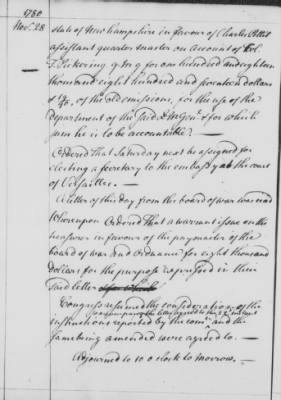 1780
Nov. 28
state of New hampshire in favour of Charles Pettit
assistant quarter master on account of Col.
T. Pickering q m g for one hundred and eighteen
thousand eight hundred and seventeen dollars
of the old emissions, for the use of the
department of the said q M Genl & for which
sum he is to be accountable.
Ordered That Saturday next be assigned for
electing a secretary to the embassy at the court
of Versailles.
A letter of this day from the board of war was read
Whereupon Ordered That a warrant issue on the
treasurer in favour of the paymaster of the
board of war and Ordnance for eight thousand
dollars for the purpose expressed in their
said letter
Congress resumed the consideration of the
accompanying the letter agreed to the 22 instant
instructions reported by the comee and the
same being amended were agreed to.
Adjourned to 10 o clock to morrow.